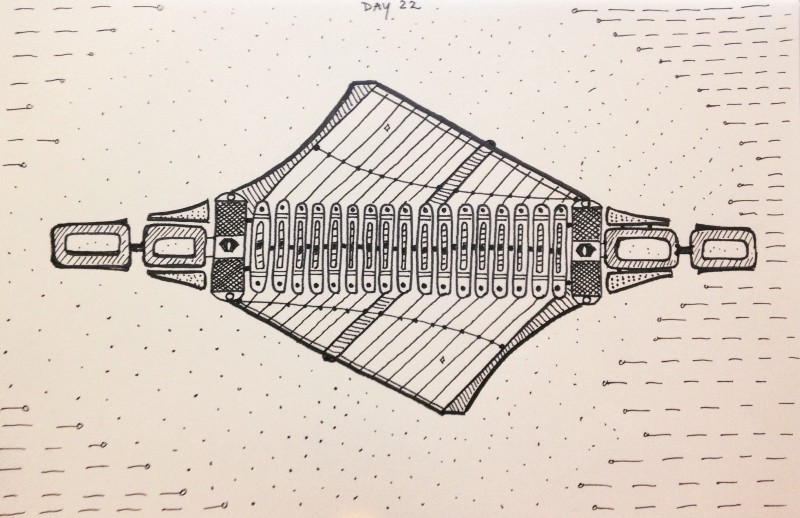 DAY 22